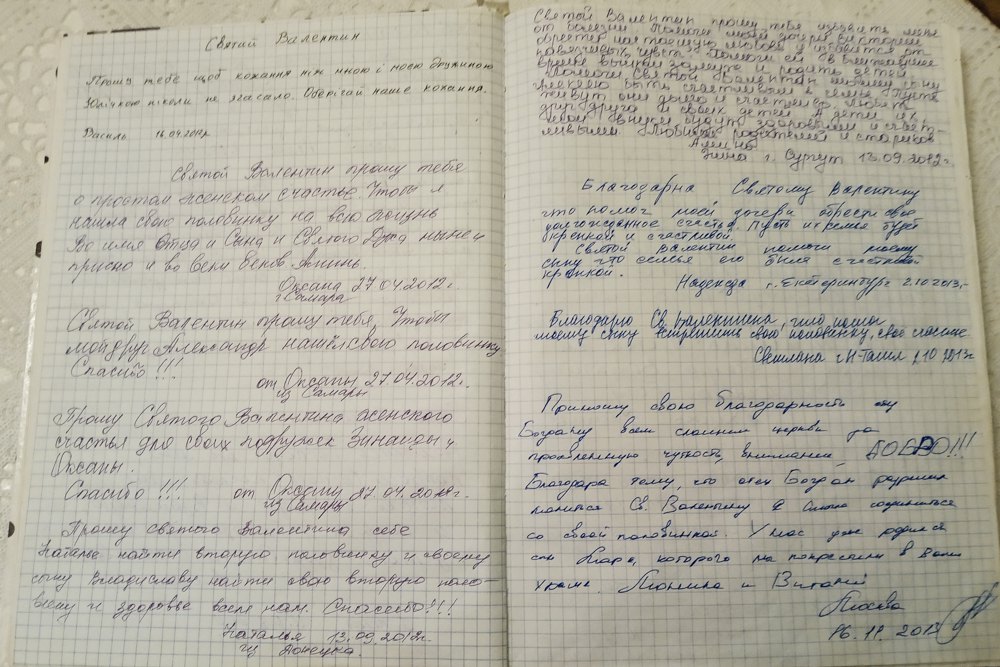 Святий Валентин
Прошу тебе щоб кохання між мною і моєю дружиною
Юлічкою ніколи не згасало. Оберігай наше кохання.
Василь 16.04.2012р
Святой Валентин прошу тебя
о простом женском счастье. Чтобы я
нашла свою половинку на всю жизнь
Во имя Отца и Сына и Святого Духа ныне и
присно и во веки веков. Аминь.
Оксана 27.04.2012г.
г. Самара
Святой Валентин прошу тебя, чтобы
мой друг Александр нашёл свою половинку
Спасибо !!!
от Оксаны 27.04.2012г.
из Самары
Прошу Святого Валентина женского
счастья для своих подружек Зинаиды и
Оксаны.
Спасибо !!! от Оксаны 27.04.2012г.
из Самары
Прошу святого Валентина себе
Наталье найти вторую половинку и своему
сыну Владиславу найти свою вторую поло-
винку и здоровье всем нам. Спасибо!!!
Наталья 13.09.2012г.
из Донецка.
Святой Валентин прошу тебя избавить меня
от болезни. Помоги моей дочери Виктории
обрести настоящую любовь и избавится от
навязчивых чувств. Помоги ей в
время выйти замуж и родить детей.
Помоги Святой Валентин моему сыну
Алексею быть счастливым в семье. Пусть
живут они долго и счастливо. Любят
друг друга и своих детей. А дети их
мои внуки будут здоровыми и счаст-
ливыми. Любящие родителей и стариков
Зина г. Сургут 13.09.2012г.
Благодарна Святому Валентину
что помог моей дочери обрести свое
долгожданное счастье, пусть их семья будет
крепкой и счастливой.
Святой Валентин помоги моему
сыну что семья его была счастливой
крепкой.
Надежда г. Екатеринбург 2.10.2013г.
Благодарю Св. Валентина, что помог
моему сыну встретить свою половинку, своё счастье
Светлана г. Н-Тагил 2.10.2013г.
Приношу свою благодарность отцу
Богдану всем служителям церкви за
проявленную чуткость, внимание, ДОБРО!!!
Благодаря тому, что отец Богдан разрешил
молиться Св. Валентину я смогла соединиться
со своей половинкой. У нас уже родился
сын Марк, которого мы покрестили в Вашем
храме. Людмила и Виталий
Москва
16.11.2013